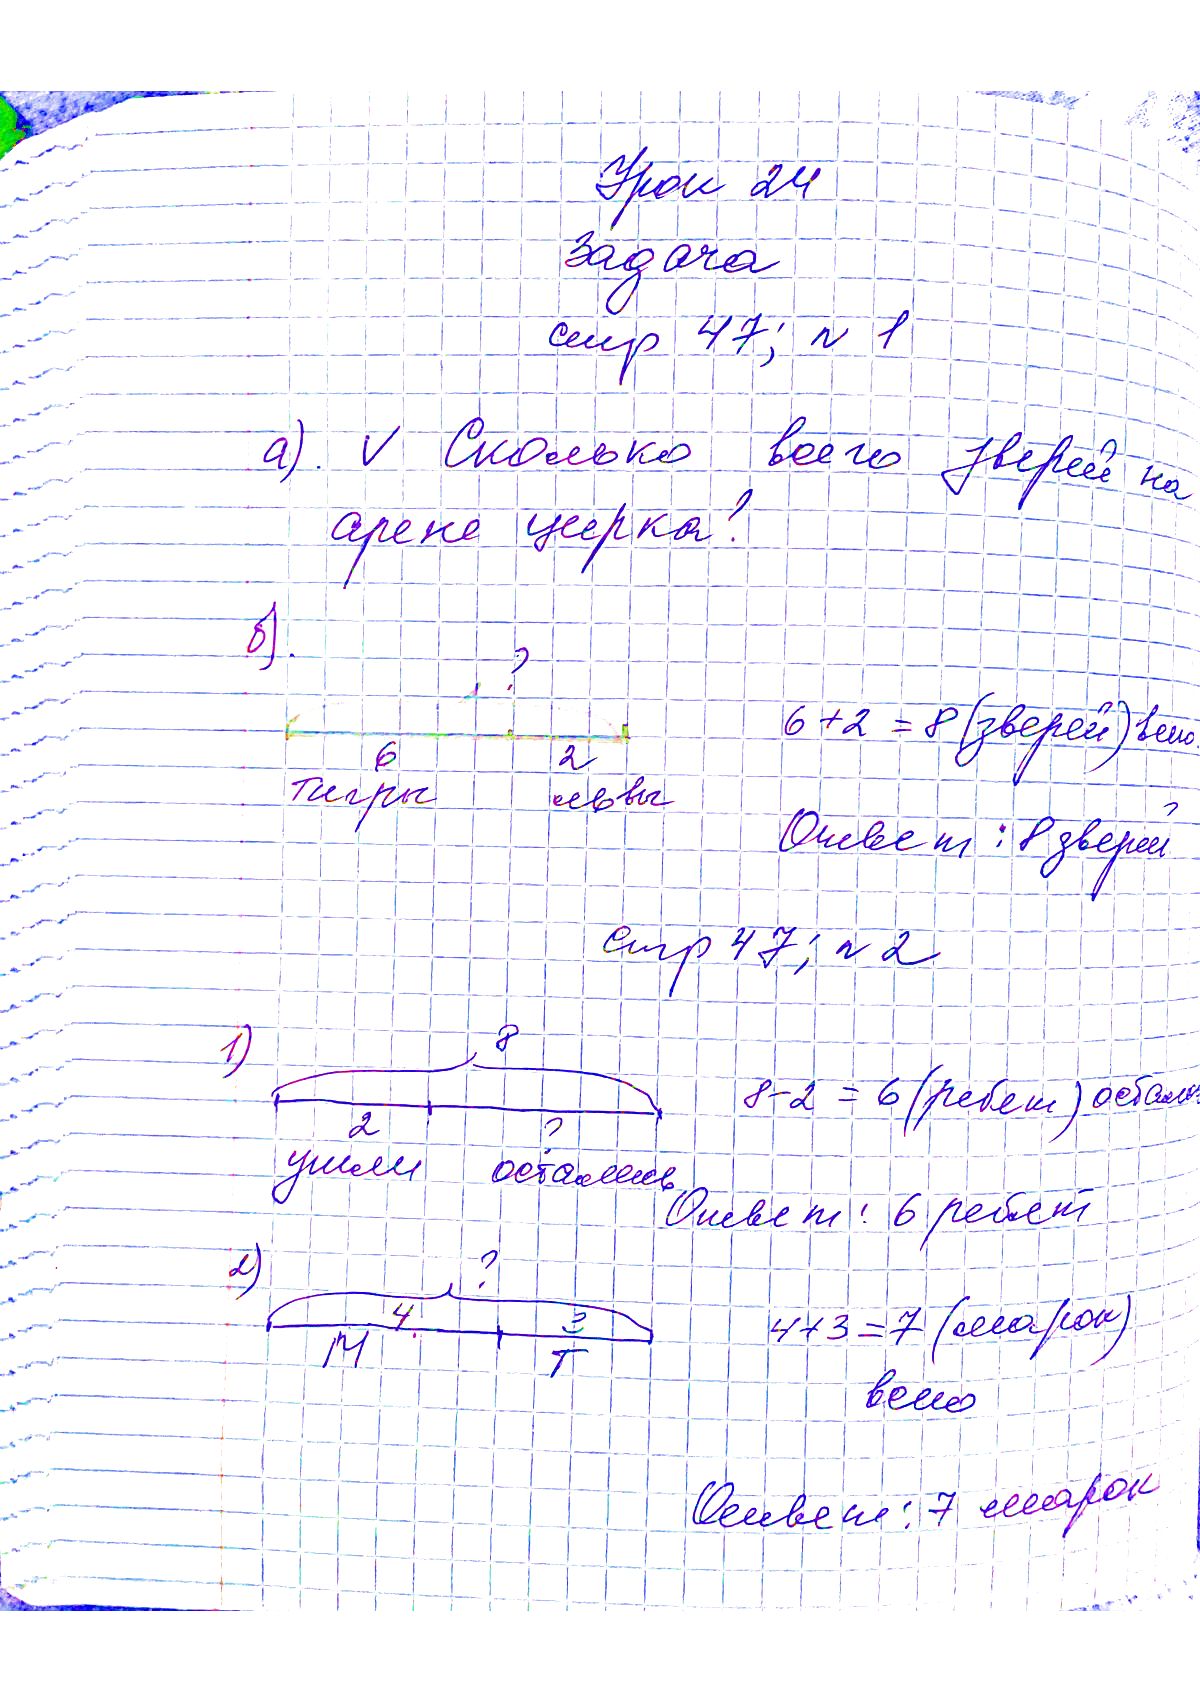 Урок 24
Задача
стр 47; n 1
а). V Сколько всего зверей на
арене цирка?
б).
?
6 2
тигры львы
6+2 = 8 (зверей) всего
Ответ: 8 зверей
стр 47; n 2
1)
8
2 ?
ушли остались
8-2 = 6 (ребят) остались
Ответ: 6 ребят
2)
?
4 3
М Т
4+3 = 7 (марок)
всего
Ответ: 7 марок